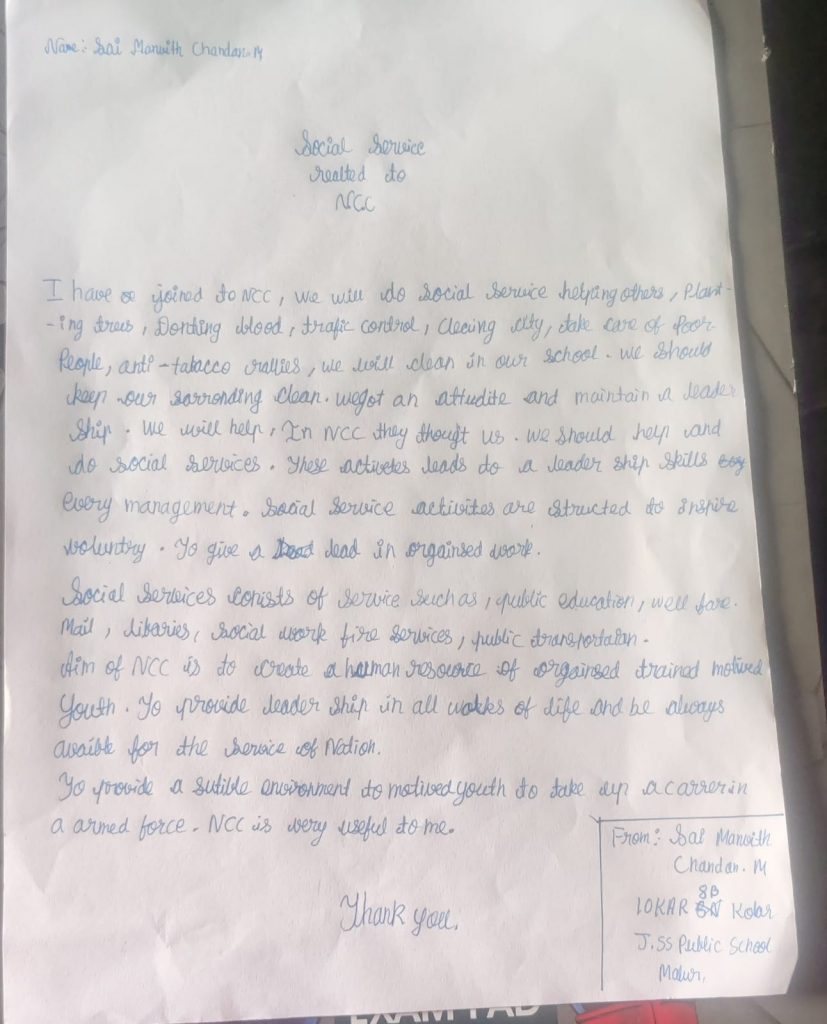 Name: Sai Manvith Chandan.M
Social Service
realted to
NCC
I have joined to NCC, we will do social service helping others, Plant-
-ing trees, Donting blood, trafic control, cleeing city, take care of Poor
People, anti-tabacco rallies, we will clean in our school. we should
keep our sarronding clean. we got an attudite and maintain a leader
ship. we will help, In NCC they thought us. we should help and
do social services. These activetes leads do a leader ship skills
every management. Social service activites are structed to inspire
voluntry. To give a lead in orgainsed work.
Social Services conists of service such as, public education, well fare.
Mail, libaries, social work fire services, public transportatan.
Aim of NCC is to create a human resource of orgainsed trained motived
Youth. To provide leader ship in all walks of life and be always
avaible for the service of Nation.
To provide a sutible environment to motived youth to take up a carrer in
a armed force. NCC is very useful to me.
Thank you.
From: Sai Manvith
Chandan. M
8B
10KAR BN Kolar
J.SS Public School
Malur,
EXAM PAD